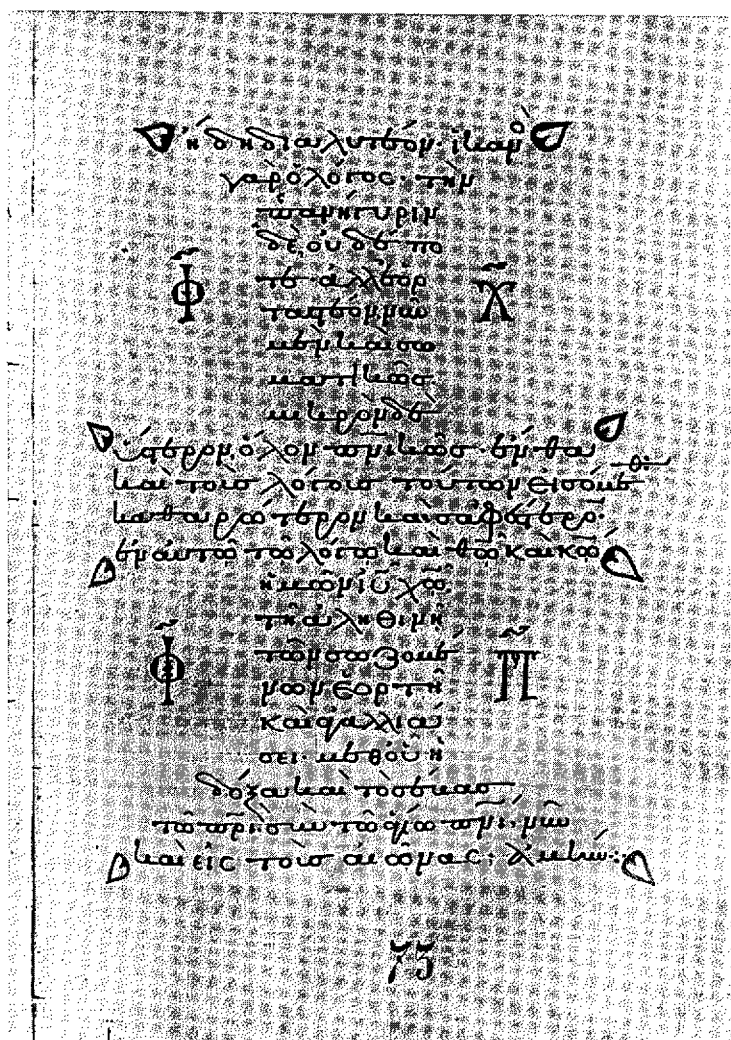 ἤδη δὴ διαλύσομεν· ἱκανὸ
γὰρ ὁ λόγος· τὴν
πανήγυριν
δὲ, οὐδέπο
τε ἀλλ' ἑορ
Φ Χ
τάσομεν νῦ
μὲν καὶ σω
ματικῶς
μικρὸν δὲ
ὕστερον, ὅλον πνικῶς· ἔνθα
καὶ τοὺς λόγους τούτων εἰσόμεθα
καθαρώτερον καὶ σαφέστερον·
ἐν αὐτῷ τῷ λόγῳ καὶ θῶ καὶ κῶ
ἡμῶν ἰῦ χῶ
τῇ ἀληθινῇ
τῶν σωζομέ
Φ Π
νων ἑορτῇ
καὶ ἀγαλλιά
σει· μεθ' οὗ ἡ
δόξα καὶ τὸ σέβας
τῷ πρὶ σὺν τῷ ἁγίῳ πνι· νῦν
καὶ εἰς τοὺς αἰῶνας· ἀμήν:
75